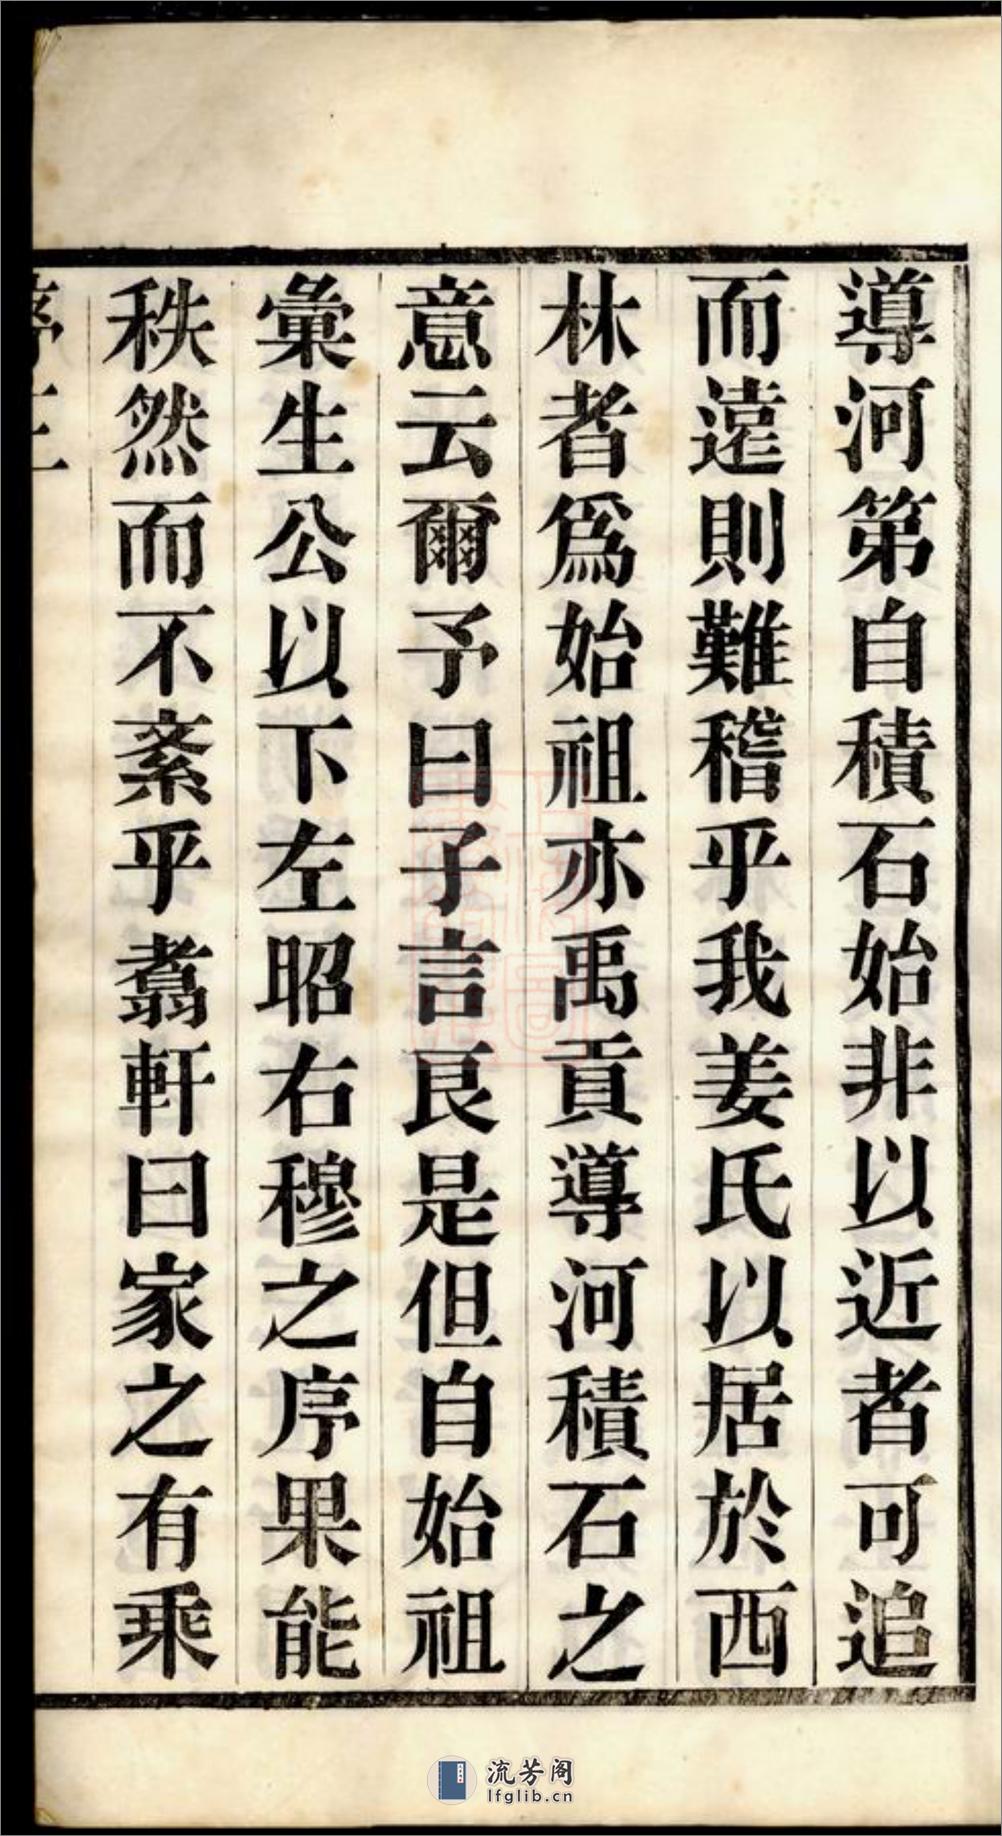 導河第自積石始非以近者可追
而遠則難稽乎我姜氏以居於西
林者爲始祖亦禹貢導河積石之
意云爾予曰子言良是但自始祖
彙生公以下左昭右穆之序果能
秩然而不紊乎翥軒曰家之有乘
流芳阁
lfglib.cn